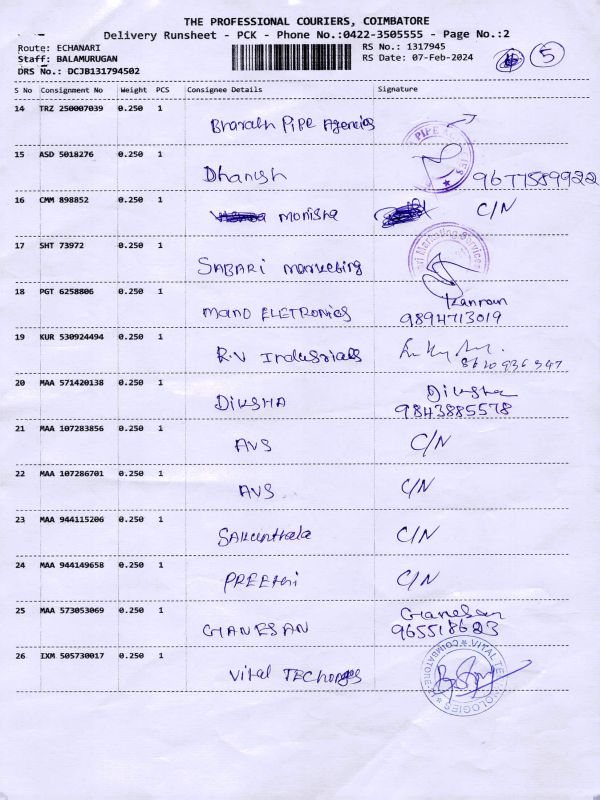 THE PROFESSIONAL COURIERS, COIMBATORE
Delivery Runsheet - PCK - Phone No.:0422-3505555 - Page No.:2
Route: ECHANARI RS No.: 1317945
Staff: BALAMURUGAN RS Date: 07-Feb-2024 5
DRS No.: DCJB131794502
S No Consignment No Weight PCS Consignee Details Signature
14 TRZ 250007039 0.250 1
Bharath PIPE Agencies PIPE
15 ASD 5018276 0.250 1
Dhanush 9677589922
16 CMM 898852 0.250 1
monisha C/N
17 SHT 73972 0.250 1
SABARI marketing ari Marketing Services
18 PGT 6258806 0.250 1
MANO ELETRONICS 9894713019
19 KUR 530924494 0.250 1
R.V Industrials
20 MAA 571420138 0.250 1 Diksha
DIKSHA 9843885578
21 MAA 107283856 0.250 1
AVS C/N
22 MAA 107286701 0.250 1
AVS C/N
23 MAA 944115206 0.250 1
Sakunthala C/N
24 MAA 944149658 0.250 1
PREEthi C/N
25 MAA 573053069 0.250 1 Ganesan
GANESAN 965518623
26 IXM 505730017 0.250 1 VITAL TE NOLOGIES COIMBATORE
Vital TEChonges